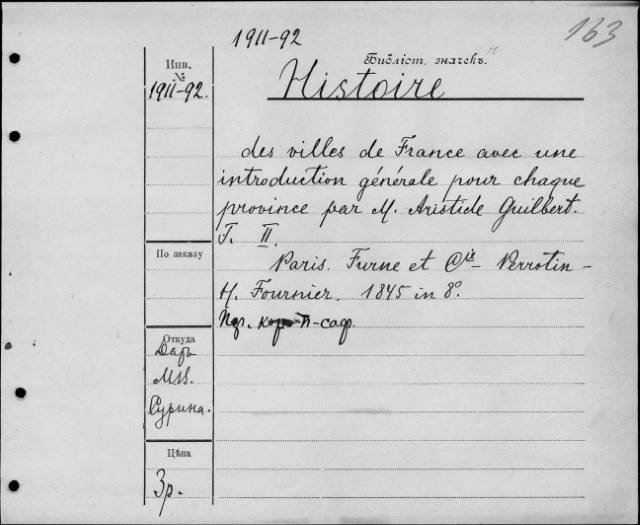 1911-92
163
Инв.
№
1911-92.
Библіот. значекъ.
Histoire
des villes de France avec une
introduction générale pour chaque
province par M. Aristide Guilbert.
T. II.
По заказу
Paris. Furne et Cie Perrotin -
H. Fournier. 1845 in 8°.
п-саф.
Откуда
Даръ
Сурина.
Цѣна
3р.